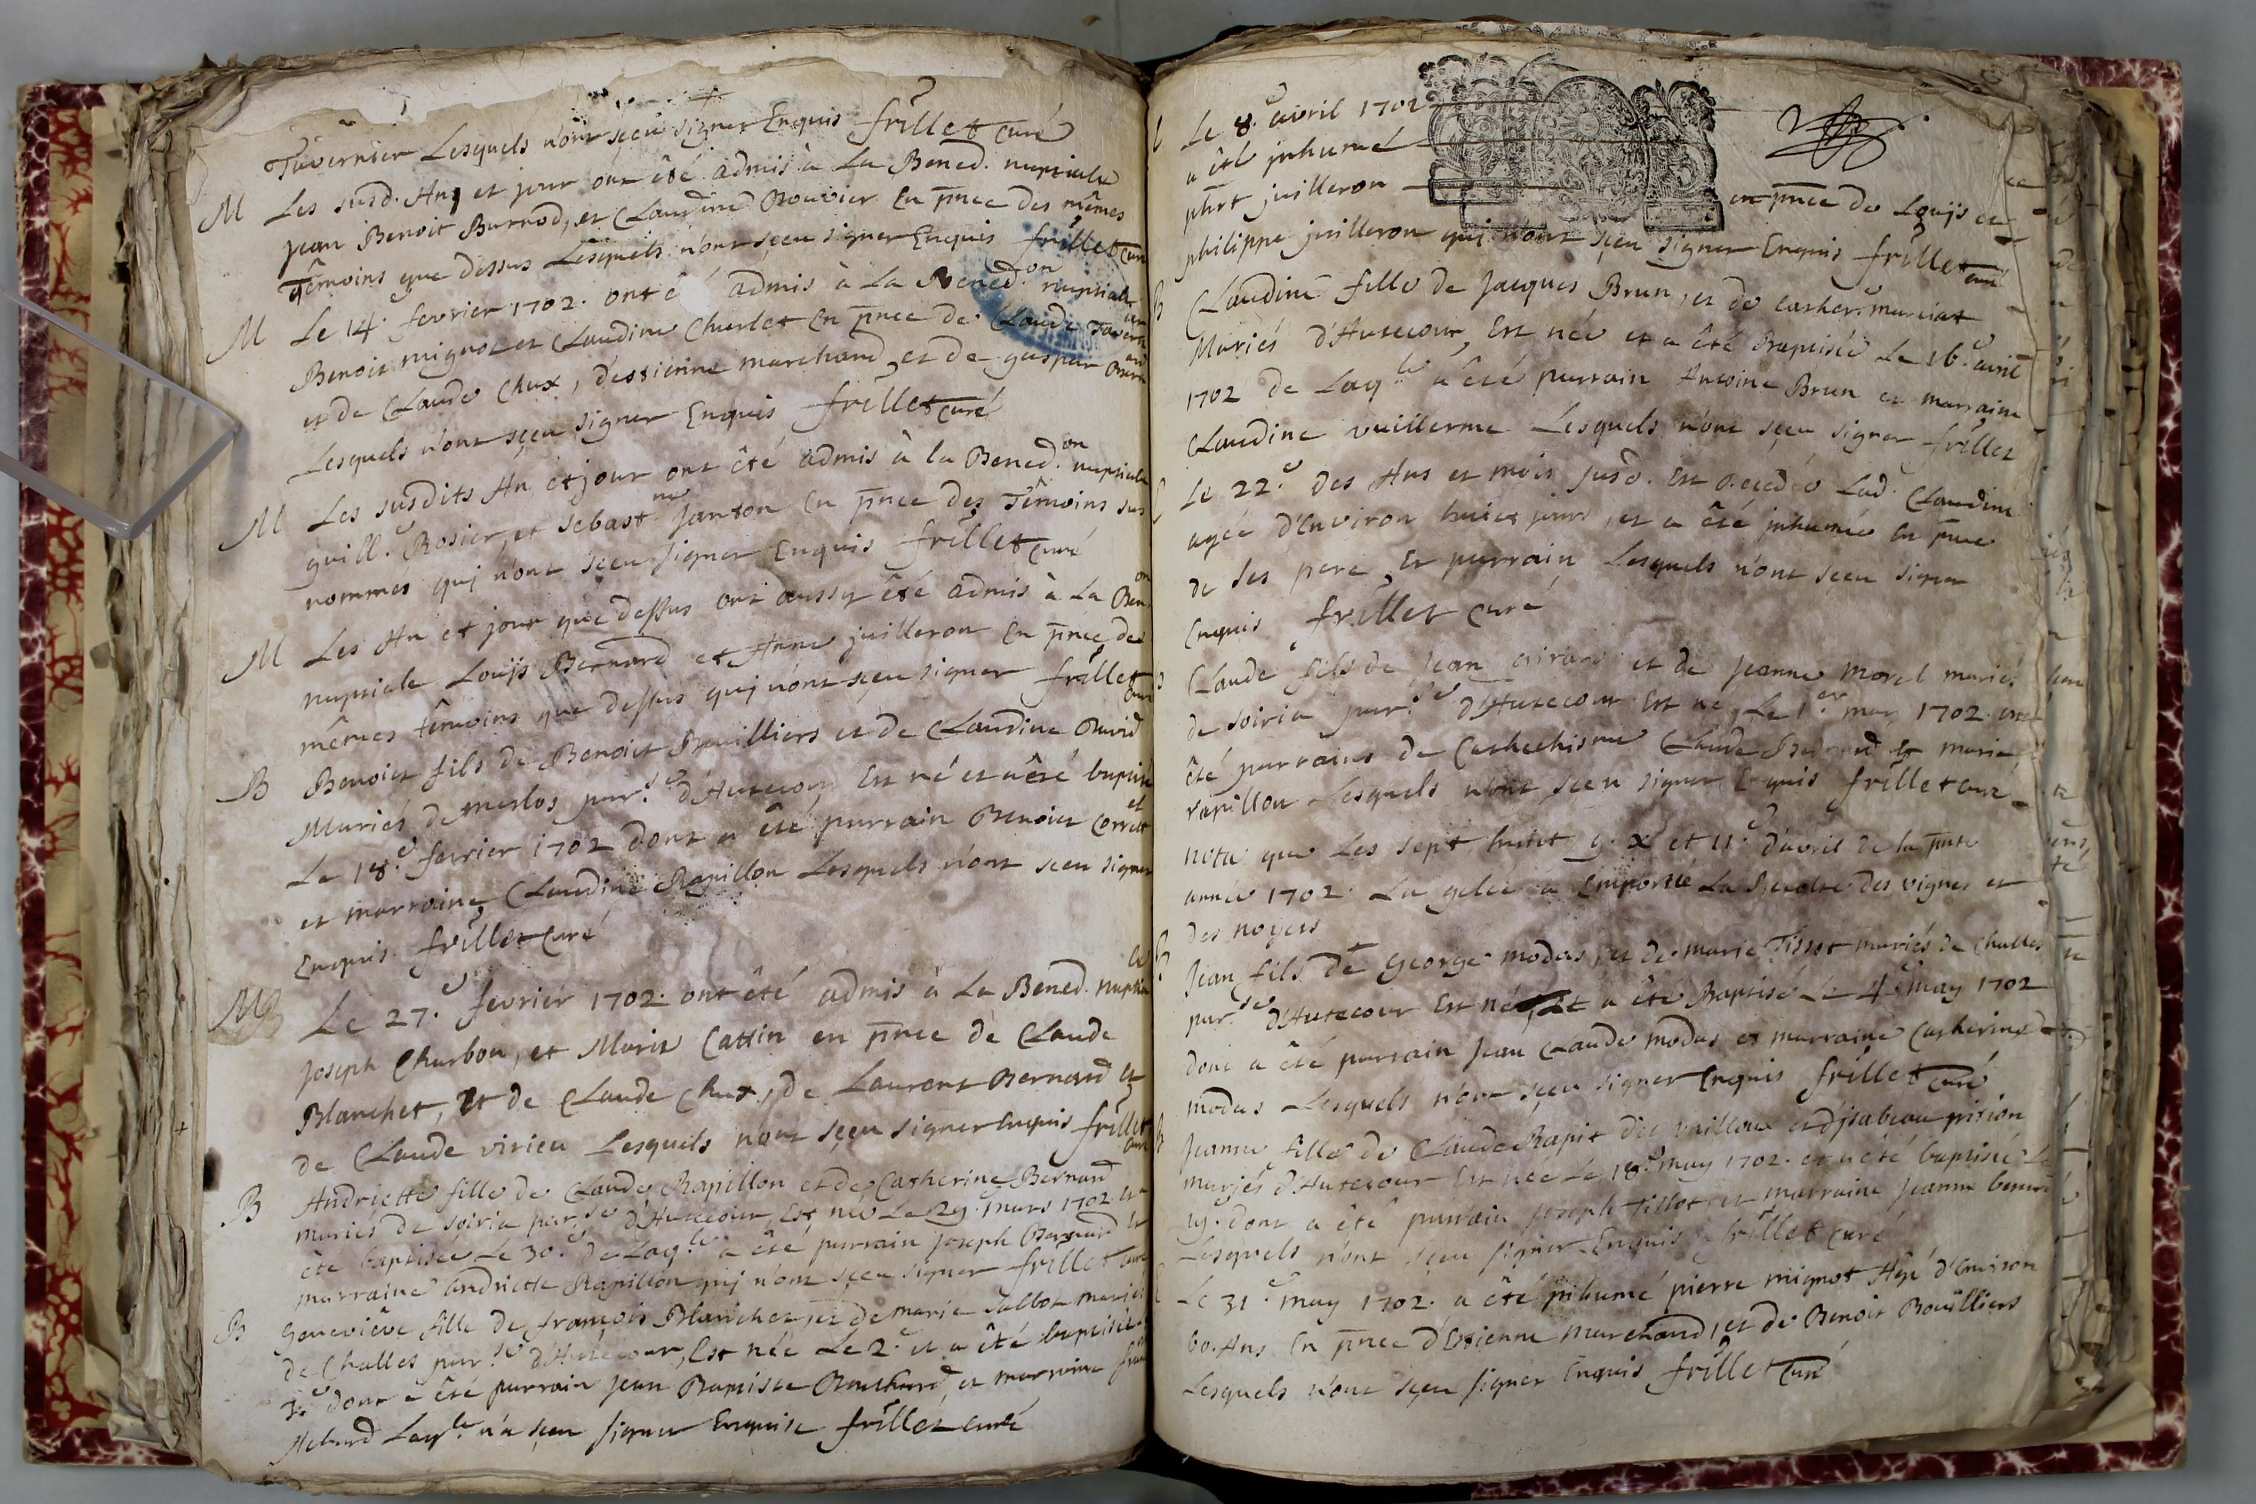 Tavernier Lesquels n'ont sçeu signer Enquis frillet curé
M Les susd. An, et jour ont êté admis à La Bened. nuptiale
Jean Benoit Burnod, et Claudine Bouvier En pnce des mêmes
Têmoins que dessus Lesquels n'ont sçeu signer Enquis frillet cur
M Le 14. fevrier 1702. ont é admis à La Bened.on nuptiale
Benoit mignot et Claudine Charlet En pnce de Claude Taver
et de Claude Chux, d'estienne marchand, et de gaspar
Lesquels n'ont sçeu signer Enquis frillet curé
M Les susdits An et jour ont êté admis à la Bened.on nuptiale
guill.e Rosier, et sebast.ne Janton En pnce des Têmoins sus
nommes quj n'ont sçeu signer Enquis frillet curé
M Les An et jour que dessus ont aussy êté admis à La Ben.on
nuptiale Louÿs Bernard et Anne juilleron En pnce des
mêmes têmoins que dessus quj n'ont sçeu signer frillet cur
B Benoict fils de Benoict Bouilliers et de Claudine David
Mariés de merlos par.se d'Autecour Est né et a êté baptisé
Le 18.e fevrier 1702 dont a êté parrain Benoict Corret
et marraine, Claudine Rapillon Lesquels n'ont sceu signer
Enquis frillet curé
M Le 27.e fevrier 1702. ont êté admis à La Bened. nuptia
Joseph Charbon, et Marie Cattin en pnce de Claude
Blanchet, Et de Claude Chux, de Laurent Bernard et
de Claude virieu Lesquels n'ont sçeu signer Enquis frillet curé
B Andriette fille de Claude Rapillon et de Catherine Bernard
mariés de soiria par.se d'Autecour, Est née Le 29. mars 1702. et
êté baptisée Le 30.e de Laq.le a êté parrain Joseph Bernard et
marraine Andriette Rapillon quj n'ont sçeu signer frillet curé
B Geneviêve fille de françois Blanchet, et de marie Jalbot mariés
de Challes par.se d'Autecour, Est née Le 2.e et a êté baptisée
3.e dont a êté parrain Jean Baptiste Bouchard, et marraine
Laq.le n'a sçeu signer Enquise frillet curé
Le 8.e avril 1702
a êté jnhumé
phrt juilleron
en pnce de Louÿs et
philippe juilleron quj n'ont sçeu signer Enquis frillet curé
Claudine fille de Jacques Brun, et de cather. murciat
Mariés d'Autecour, Est née et a êté Baptisée Le 16.e avril
1702 de Laq.le a êté parrain Antoine Brun et marraine
Claudine vuillerme Lesquels n'ont sçeu signer frillet
Le 22.e des Ans et mois susd. Est decedée Lad. Claudine
agée d'Environ huict jours, et a êté jnhumée En pnce
de ses pere, Et parrain Lesquels n'ont sçeu signer
Enquis frillet curé
Claude fils de Jean Girard et de Jeanne Morel mariés
de soiria par.se d'Autecour Est né, Le 1.er may 1702. ont
êté parrains de Cathechisme Claude Bernard et marie
rapillon Lesquels n'ont sçeu signer Enquis frillet curé
nota que Les sept huict 9. X et 11.e d'avril de la pnte
année 1702. La gelée a Emportée La Recolte des vignes et
des noyers
Jean fils de George modas, et de marie Tissot mariés de Challes
par.se d'Autecour Est né, Et a êté Baptisé Le 4.e may 1702
dont a êté parrain Jean Claude modas et marraine Catherine
modas Lesquels n'ont sçeu signer Enquis frillet curé
Jeanne fille de Claude Rapit dit vailloux et d'jsabeau prision
mariés d'Autecour Est née Le 18.e may 1702. et a êté baptisée Le
19. dont a êté parrain Joseph tillot, et marraine Jeanne
Lesquels n'ont sçeu signer Enquis frillet curé
Le 31.e may 1702. a êté jnhumé pierre mignot Agé d'Environ
60. Ans En pnce d'Estienne marchand, et de Benoit Bouilliers
Lesquels n'ont sçeu signer Enquis frillet curé